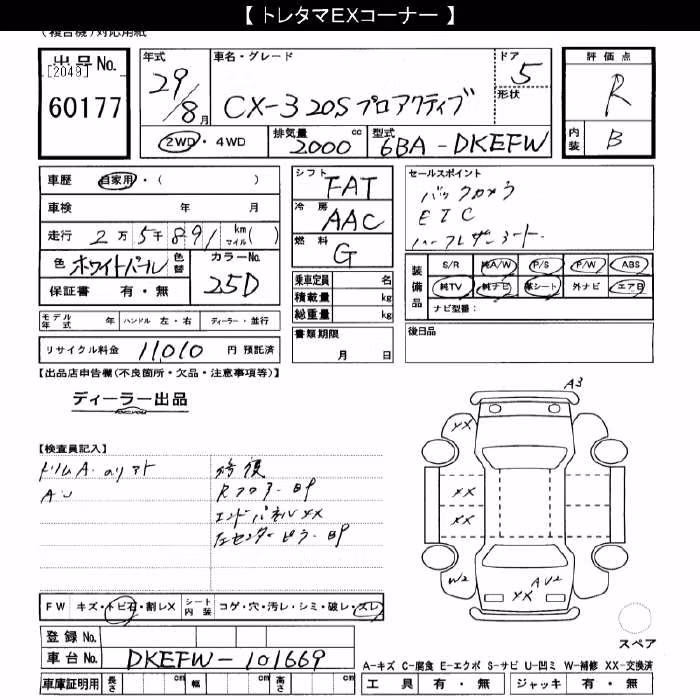 【 トレタマEXコーナー 】
(複合機)対応用紙
出品No.
[2049]
60177
年式
29/8月
車名・グレード
CX-3 20S プロアクティブ
ドア
5
形状
評価点
R
内装
B
2WD・4WD
排気量
2000 cc
型式
6BA-DKEFW
車歴 自家用・( )
車検 年 月
走行 2万5千891 km マイル( )
色 ホワイトパール 色替
カラーNo.
25D
保証書 有・無
シフト
FAT
冷房
AAC
燃料
G
乗車定員 名
積載量 kg
総重量 kg
書類期限
月 日
セールスポイント
バックカメラ
ETC
ハーフレザーシート.
装備品
S/R 純A/W P/S P/W ABS
純TV 純ナビ 革シート 外ナビ エアB
ナビ型番:
後日品
モデル年式 年 ハンドル 左・右 ディーラー・並行
リサイクル料金 11,010 円 預託済
【出品店申告欄(不良箇所・欠品・注意事項等)】
ディーラー出品
【検査員記入】
AU
修復
Rフロアー BP
エンドパネルXX
左センターピラー BP
A3
XX
XX
XX
W2
AU2
XX
スペア
FW キズ・トビ石・割レX
シート内装 コゲ・穴・汚レ・シミ・破レ・スレ
登録No.
車台No. DKEFW-101669
車庫証明用 長さ cm 幅 cm 高さ cm
A-キズ C-腐食 E-エクボ S-サビ U-凹ミ W-補修 XX-交換済
工具 有・無 ジャッキ 有・無